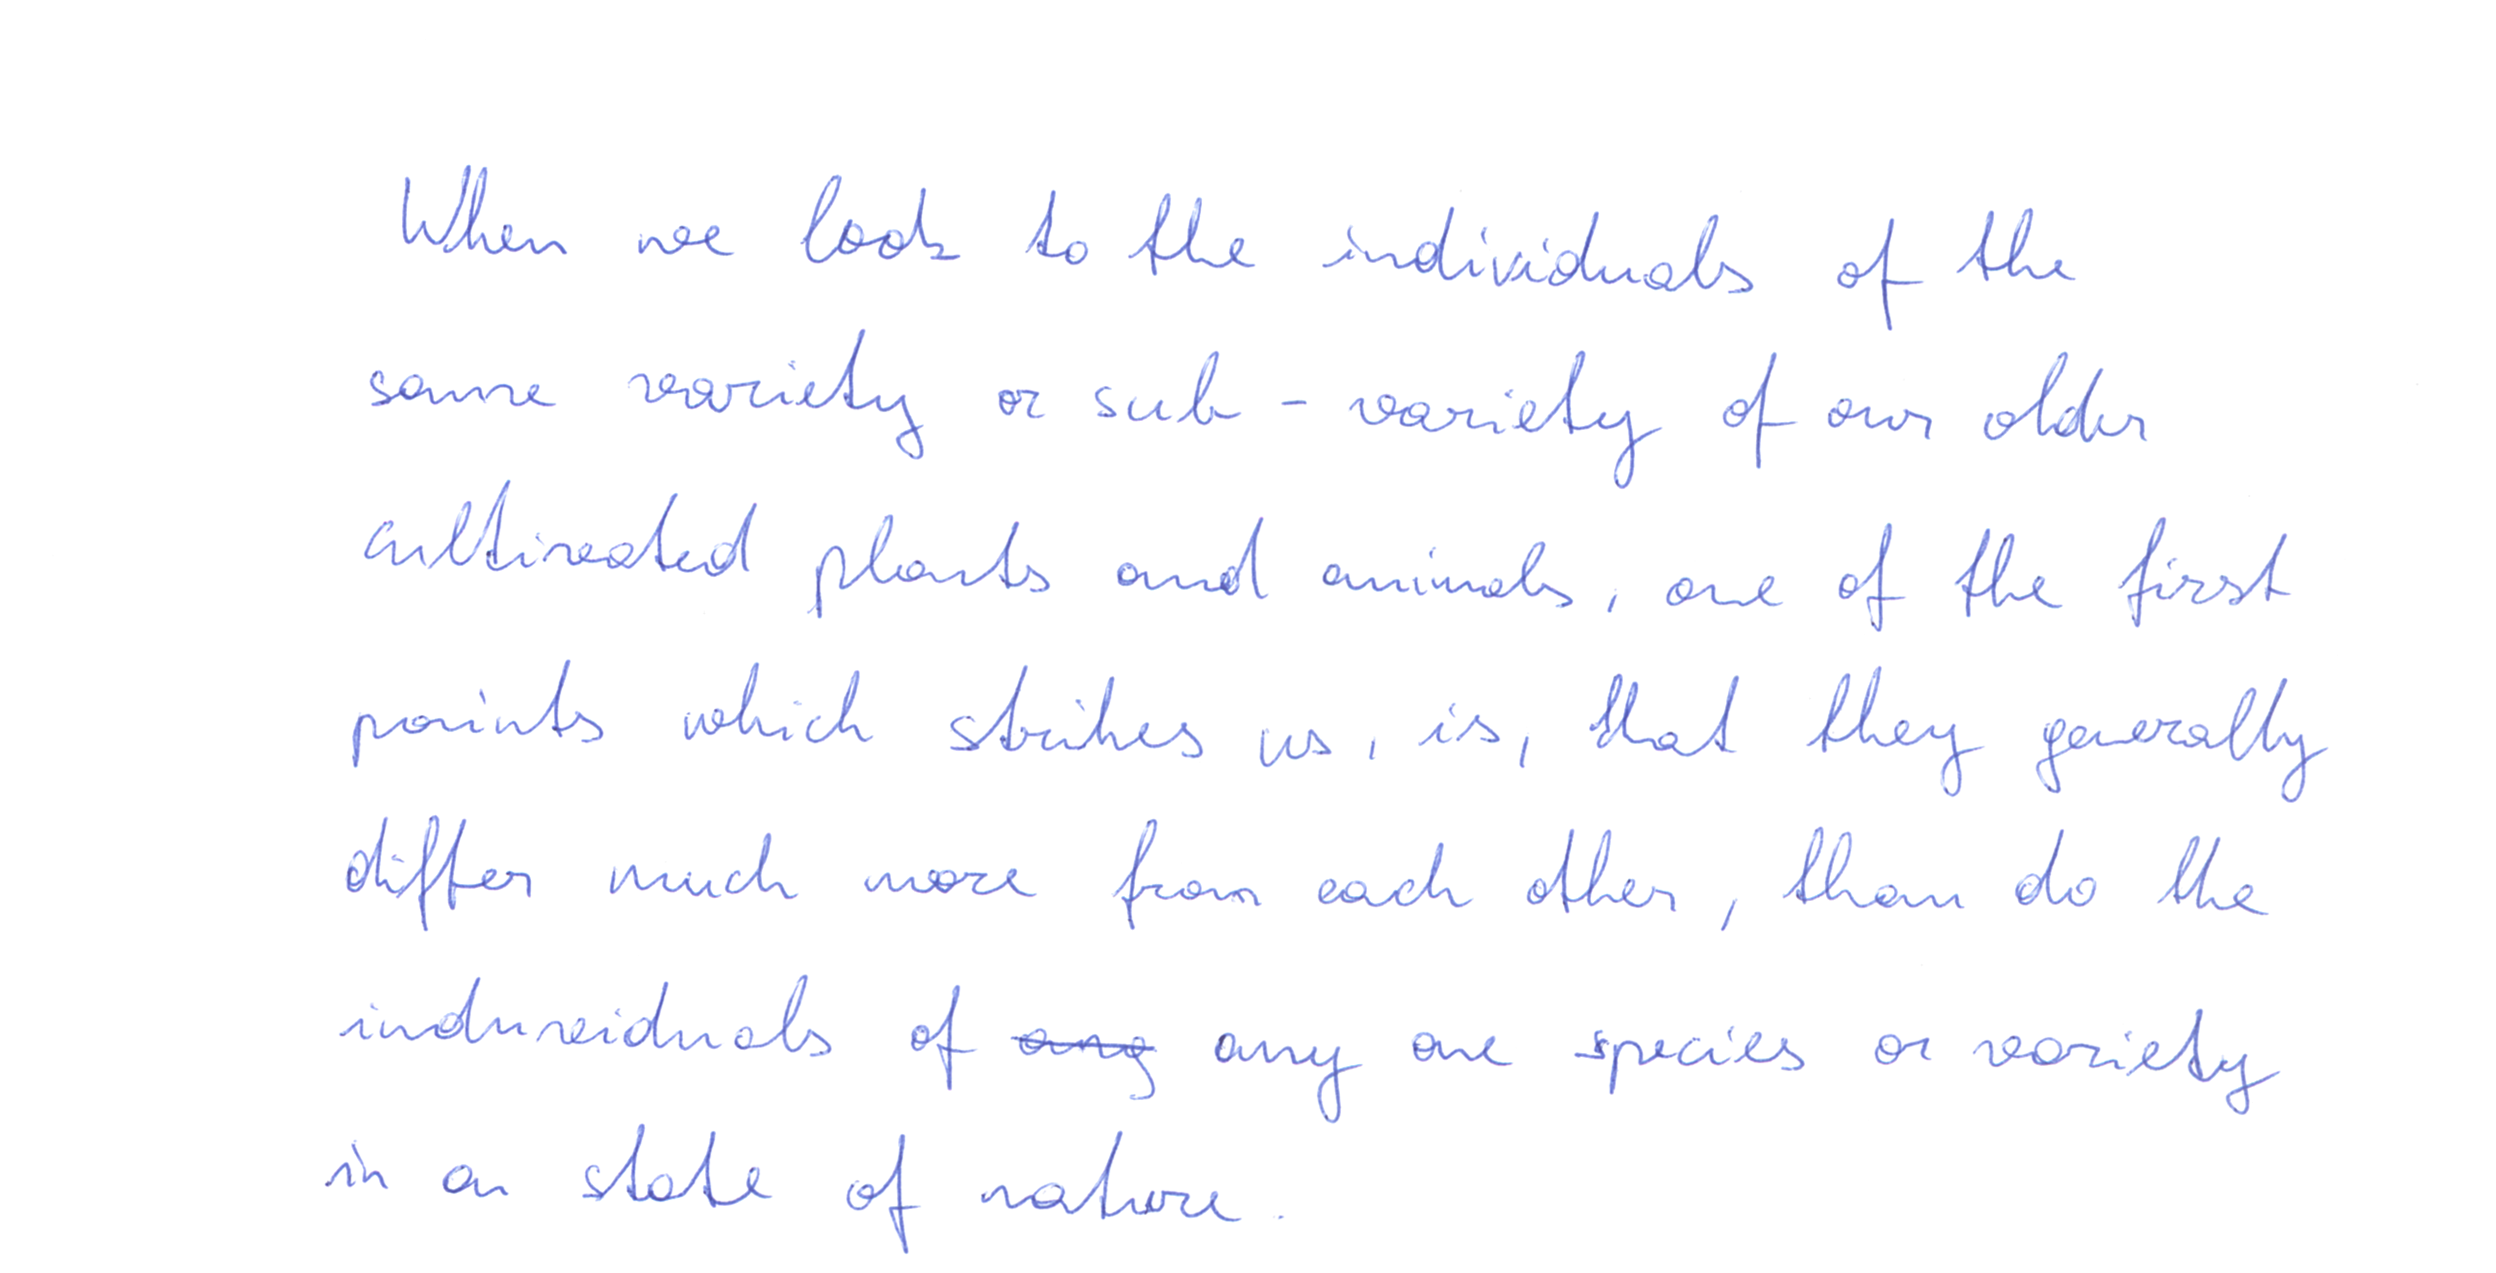 When we look to the individuals of the
same variety or sub - variety of our older
cultivated plants and animals, one of the first
points which strikes us, is, that they generally
differ much more from each other, than do the
individuals of any any one species or variety
in a state of nature.